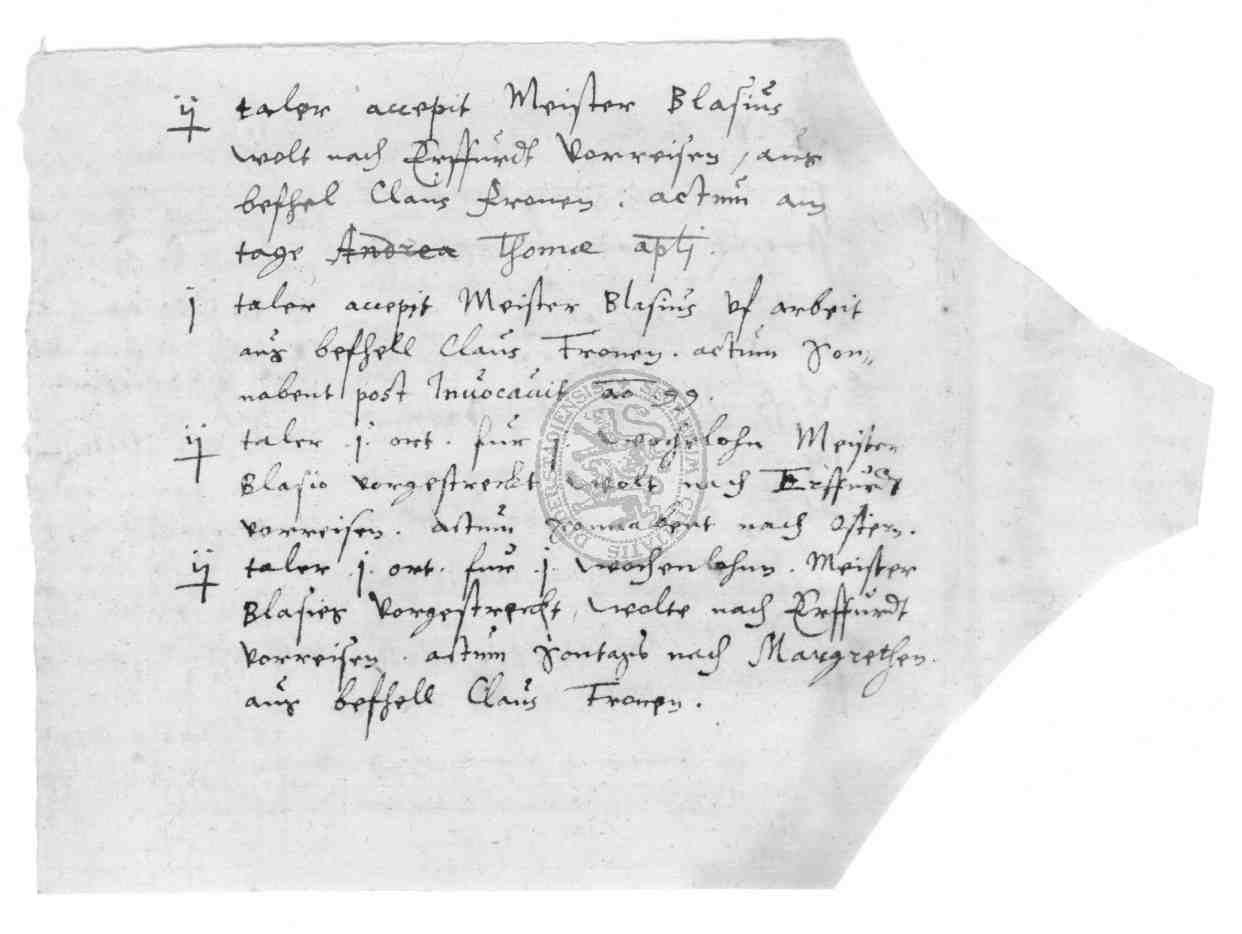 ij taler accepit Meister Blasius
wolt nach Erffurdt vorreisen, aus
befhel Claus Fronen. actum am
tage Andrea Thomæ aptj.
j taler accepit Meister Blasius vf arbeit
aus befhell Claus Fronen. actum Son„
nabent post Invocavit ao 99.
ij taler .j. ort. fur j. wochelohn Meister
Blasio vorgestreckt wolt nach Erffurdt
vorreisen. actum Sonnabent nach Ostern.
ij taler .j. ort. fur .j. wochenlohnn. Meister
Blasies vorgestreckt, wolte nach Erffurdt
vorreisen. actum Sontags nach Margrethen.
aus befhell Claus Fronen.